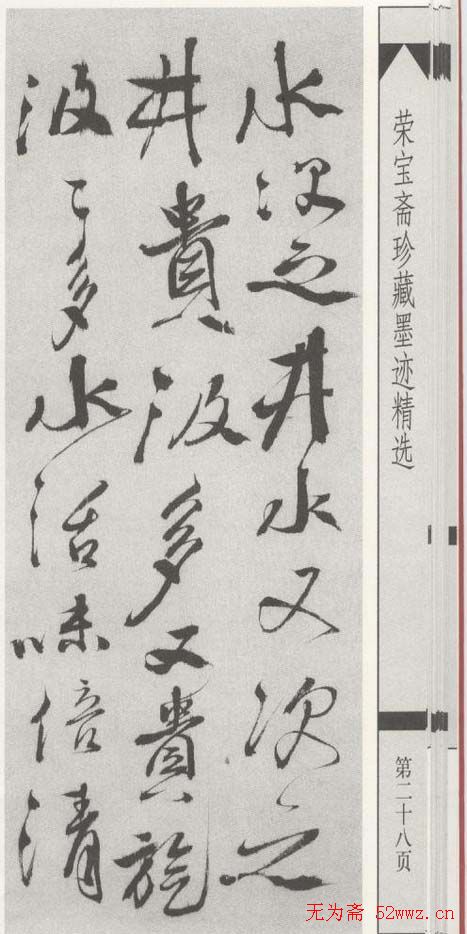 荣宝斋珍藏墨迹精选
第二十八页
水次之井水又次之
井貴汲多又貴旋
汲〻多水活味倍清
无为斋 52wwz.cn